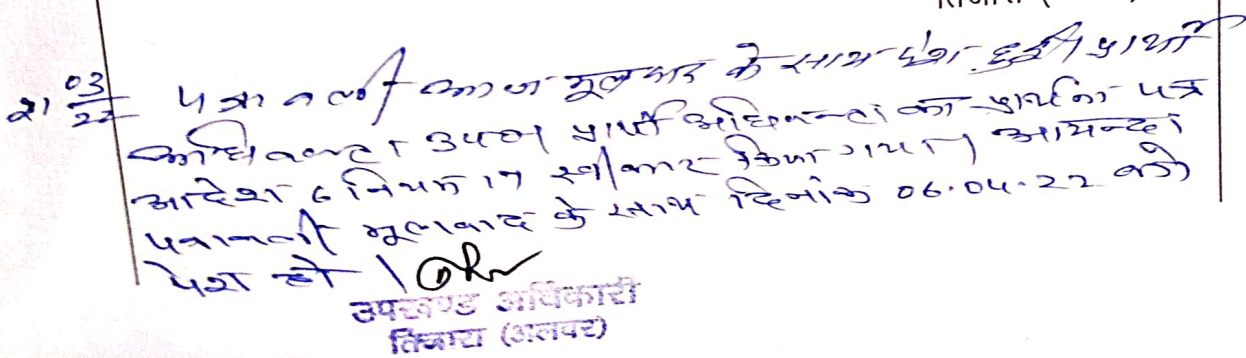 21 03/22 पत्रावली आज मूलवाद के साथ पेश हुई। प्रार्थी
अधिवक्ता उप० प्रार्थी अधिवक्ता का प्रार्थना पत्र
आदेश 6 नियम 17 स्वीकार किया गया। आयन्दा
पत्रावली मूलवाद के साथ दिनांक 06.04.22 को
पेश हो।
उपखण्ड अधिकारी
तिजारा (अलवर)